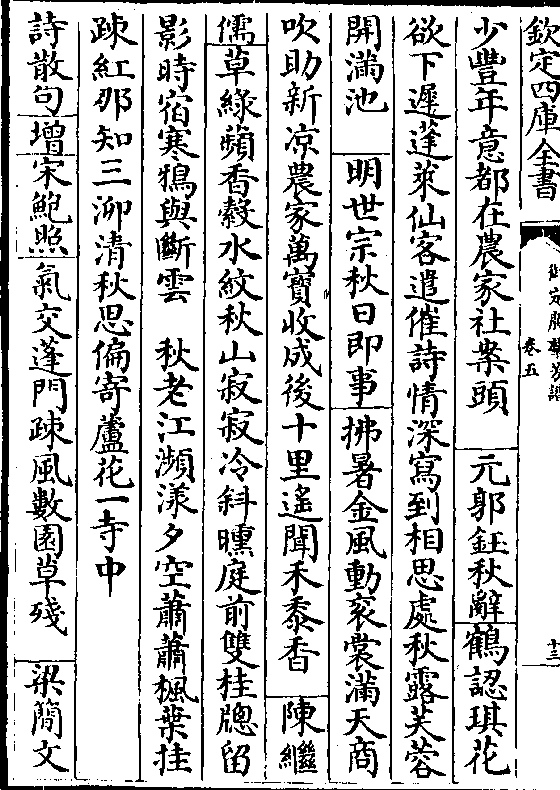 欽定四庫全書
卷五
十三
少豐年意都在農家社案頭　元郭鈺秋辭鶴認琪花
欲下遲蓬萊仙客遣催詩情深寫到相思處秋露芙蓉
開滿池　明世宗秋日即事拂暑金風動衮裳滿天商
吹助新凉農家萬寶收成後十里遙聞禾黍香　陳繼
儒草綠蘋香縠水紋秋山寂寂冷斜曛庭前雙桂牕留
影時宿寒鴉與斷雲　秋老江瀕漾夕空蕭蕭楓葉挂
疎紅那知三泖清秋思偏寄蘆花一寺中
詩散句增宋鮑照氣交蓬門疎風數園草殘　梁簡文